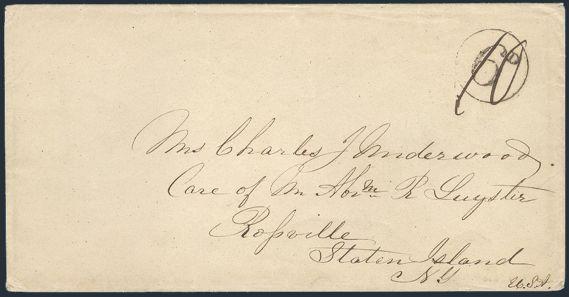 6d
10
Mrs Charles J Underwood,
Care of Mr Abrm R Luyster
Rossville
Staten Island
NY
U.S.A.